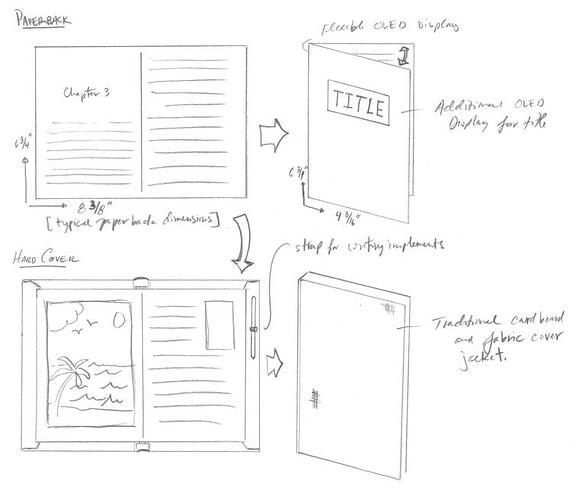 PAPERBACK
Flexible OLED Display
Chapter 3
TITLE
Additional OLED
Display for title
6 3/4"
8 3/8"
[typical paperback dimensions]
6 3/4"
4 3/16"
HARD COVER
strap for writing implements
Traditional cardboard
and fabric cover
jacket.